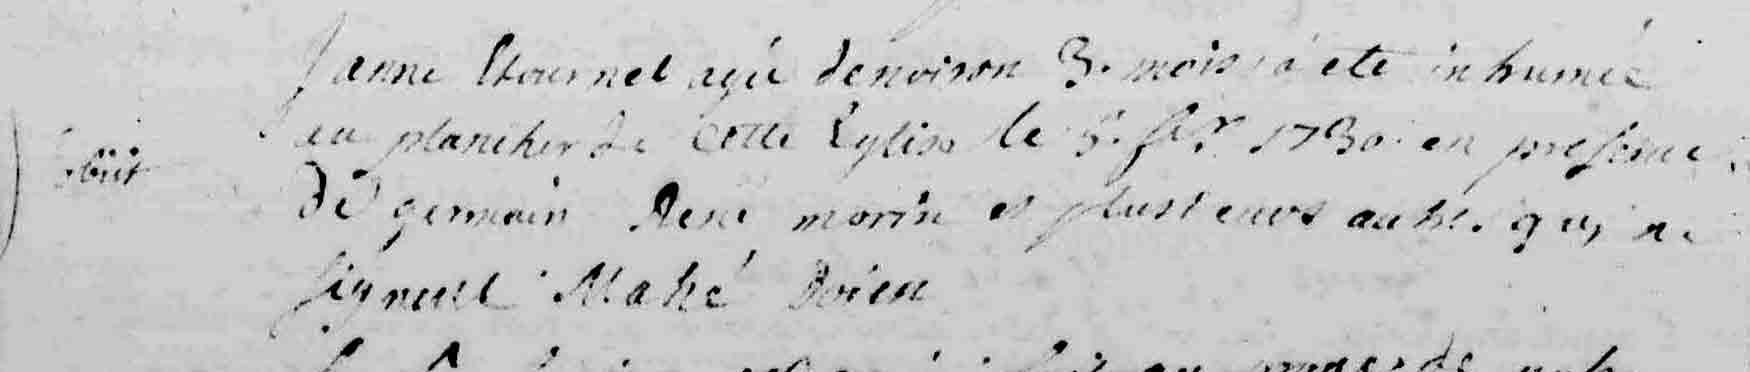 janne Etournel agée denviron 3. mois a ete inhumée
au plancher de cette Eglise le 3. 1730. en presence
de germain René morin et plusieurs autres. qui ne
signent Mahé Doien
obiit